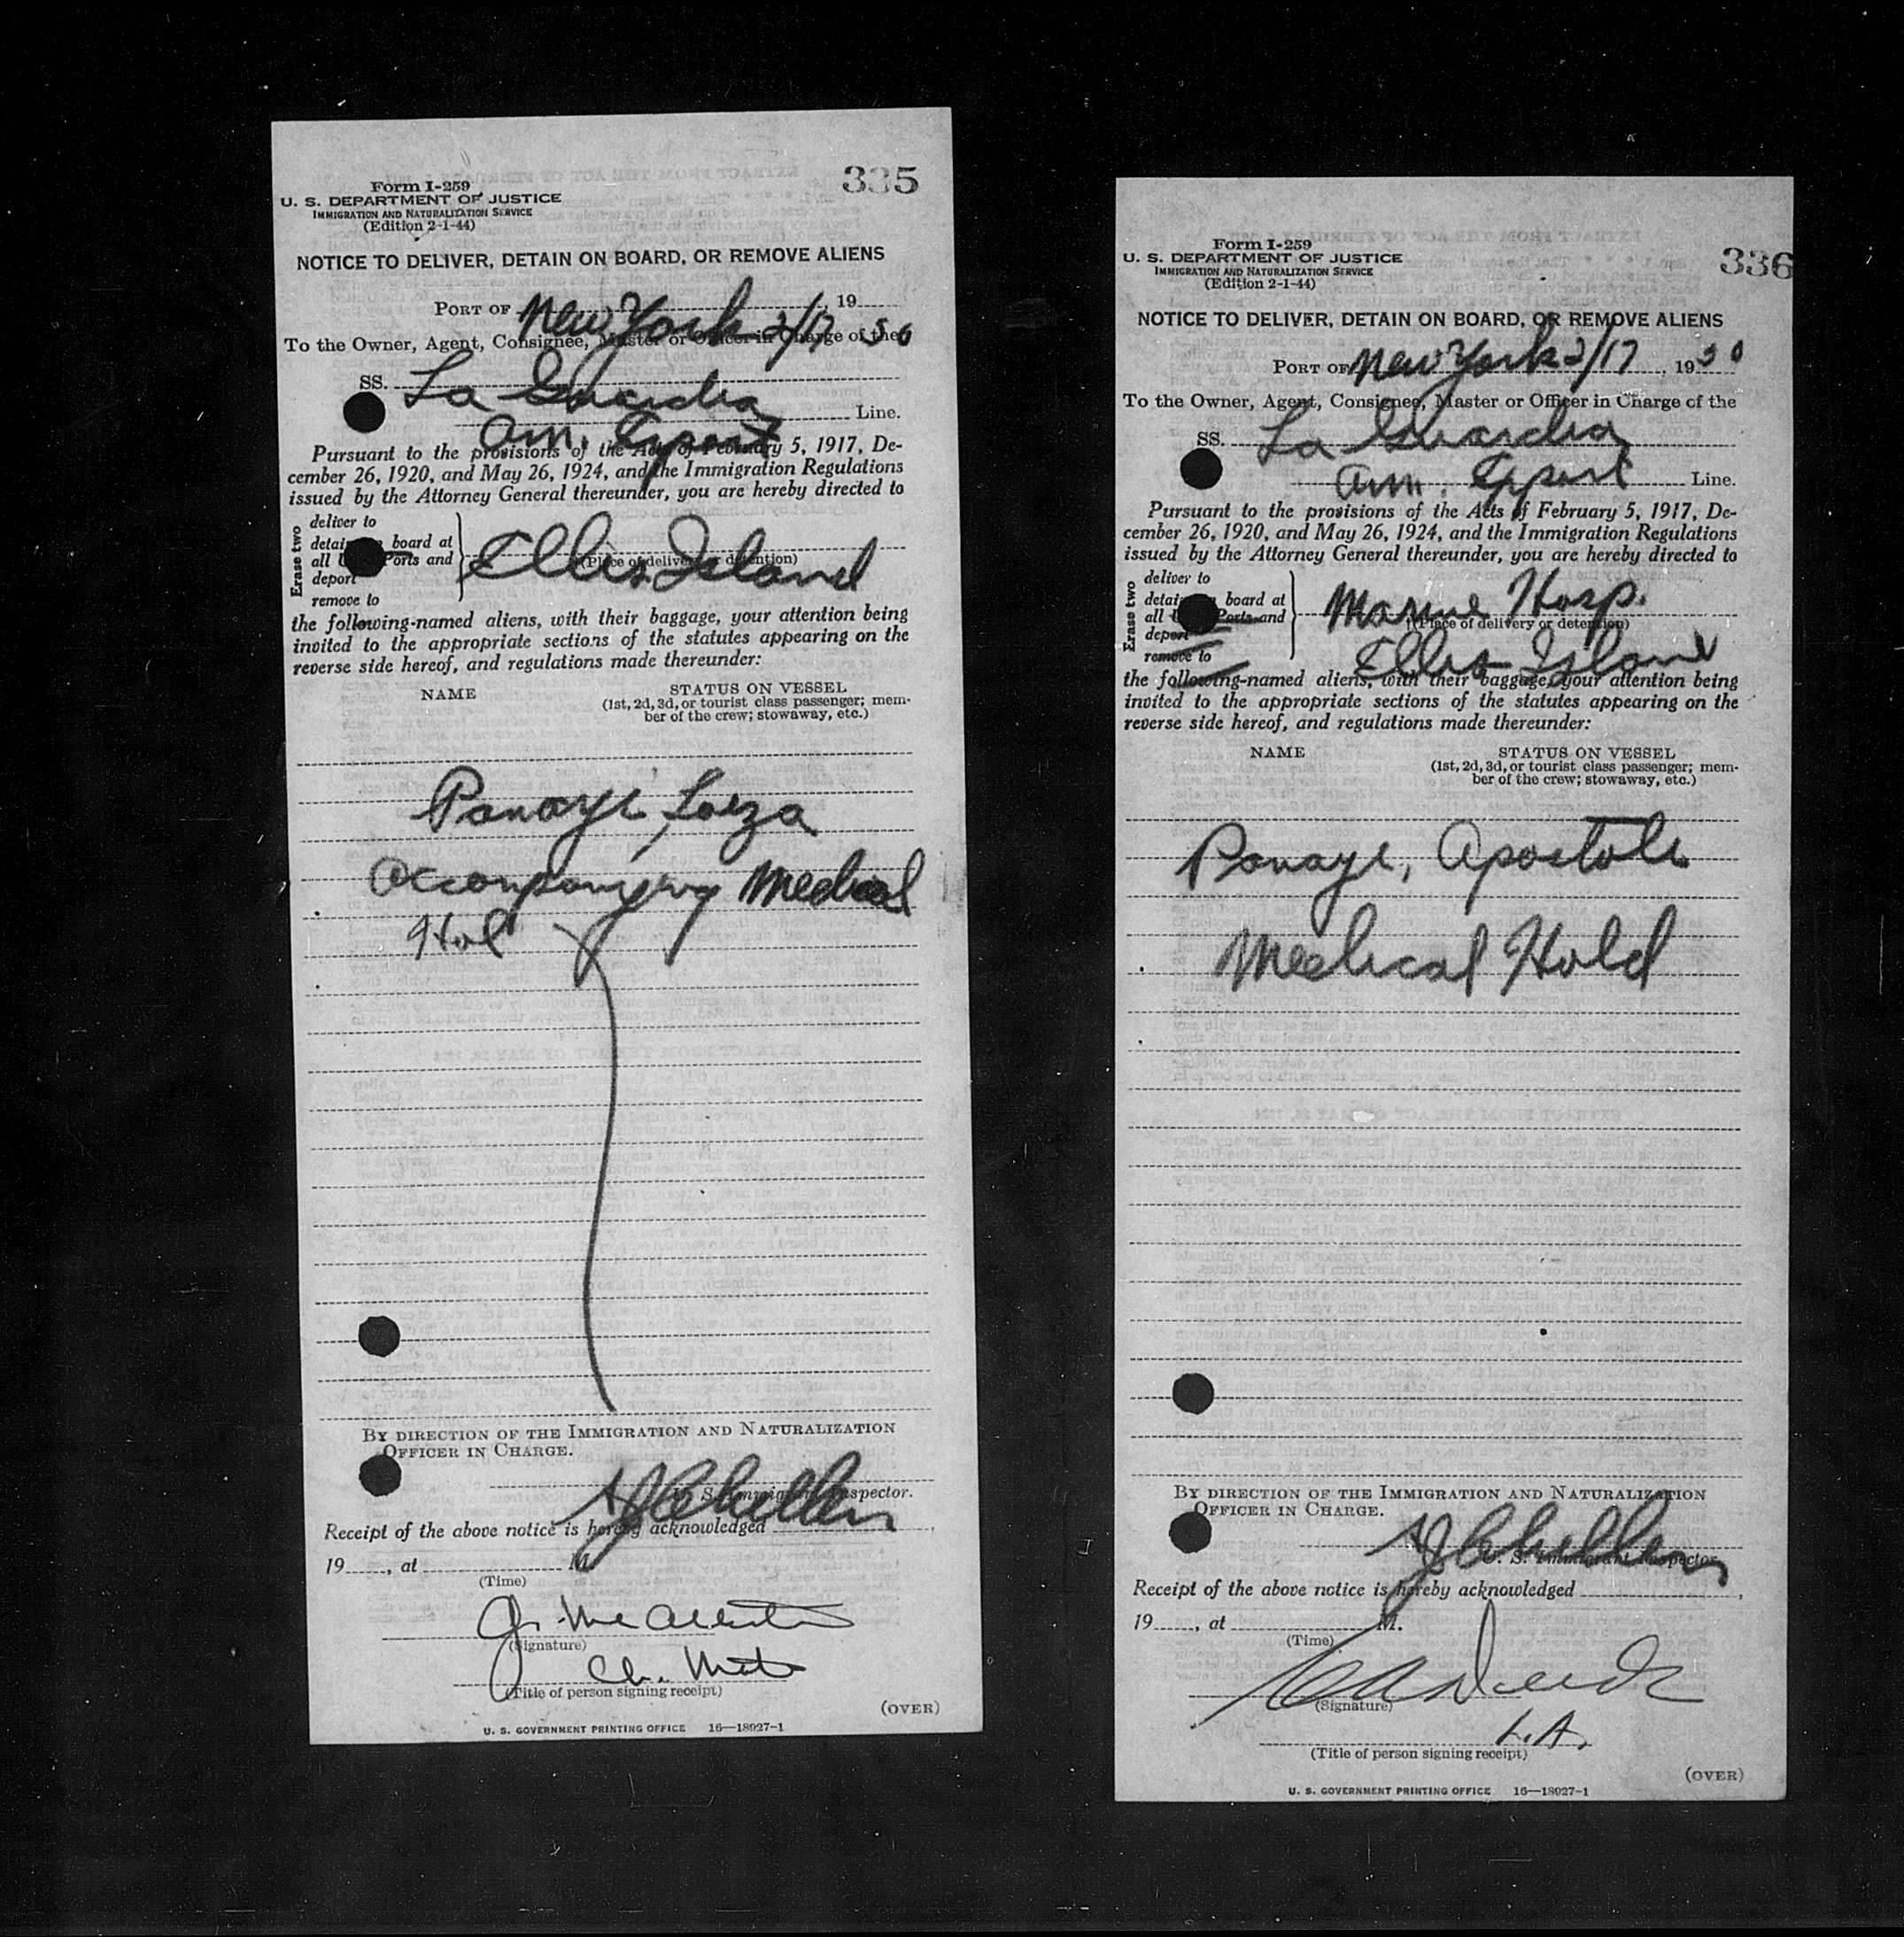 335
Form I-259
U. S. DEPARTMENT OF JUSTICE
IMMIGRATION AND NATURALIZATION SERVICE
(Edition 2-1-44)
NOTICE TO DELIVER, DETAIN ON BOARD, OR REMOVE ALIENS
PORT OF New York 2/17, 19 50
To the Owner, Agent, Consignee, Master or Officer in Charge of the
SS. La Guardia
Am. Export Line.
Pursuant to the provisions of the Acts of February 5, 1917, De-
cember 26, 1920, and May 26, 1924, and the Immigration Regulations
issued by the Attorney General thereunder, you are hereby directed to
Erase two
deliver to
detain board at
all Ports and
deport
remove to
Ellis Island
(Place of delivery or detention)
the following-named aliens, with their baggage, your attention being
invited to the appropriate sections of the statutes appearing on the
reverse side hereof, and regulations made thereunder:
NAME STATUS ON VESSEL
(1st, 2d, 3d, or tourist class passenger; mem-
ber of the crew; stowaway, etc.)
Panayi, Loiza
Accompanying Medical
Hol
BY DIRECTION OF THE IMMIGRATION AND NATURALIZATION
OFFICER IN CHARGE.
U. S. Immigrant Inspector.
Receipt of the above notice is hereby acknowledged
19, at M.
(Time)
(Signature)
Ch. Mate
(Title of person signing receipt)
(OVER)
U. S. GOVERNMENT PRINTING OFFICE 16—18927-1
336
Form I-259
U. S. DEPARTMENT OF JUSTICE
IMMIGRATION AND NATURALIZATION SERVICE
(Edition 2-1-44)
NOTICE TO DELIVER, DETAIN ON BOARD, OR REMOVE ALIENS
PORT OF New York 2/17, 19 50
To the Owner, Agent, Consignee, Master or Officer in Charge of the
SS. La Guardia
Am. Export Line.
Pursuant to the provisions of the Acts of February 5, 1917, De-
cember 26, 1920, and May 26, 1924, and the Immigration Regulations
issued by the Attorney General thereunder, you are hereby directed to
Erase two
deliver to
detain board at
all Ports and
deport
remove to
Marine Hosp.
(Place of delivery or detention)
Ellis Island
the following-named aliens, with their baggage, your attention being
invited to the appropriate sections of the statutes appearing on the
reverse side hereof, and regulations made thereunder:
NAME STATUS ON VESSEL
(1st, 2d, 3d, or tourist class passenger; mem-
ber of the crew; stowaway, etc.)
Panayi, Apostoli
Medical Hold
BY DIRECTION OF THE IMMIGRATION AND NATURALIZATION
OFFICER IN CHARGE.
U. S. Immigrant Inspector.
Receipt of the above notice is hereby acknowledged
19, at M.
(Time)
(Signature)
(Title of person signing receipt)
(OVER)
U. S. GOVERNMENT PRINTING OFFICE 16—18927-1